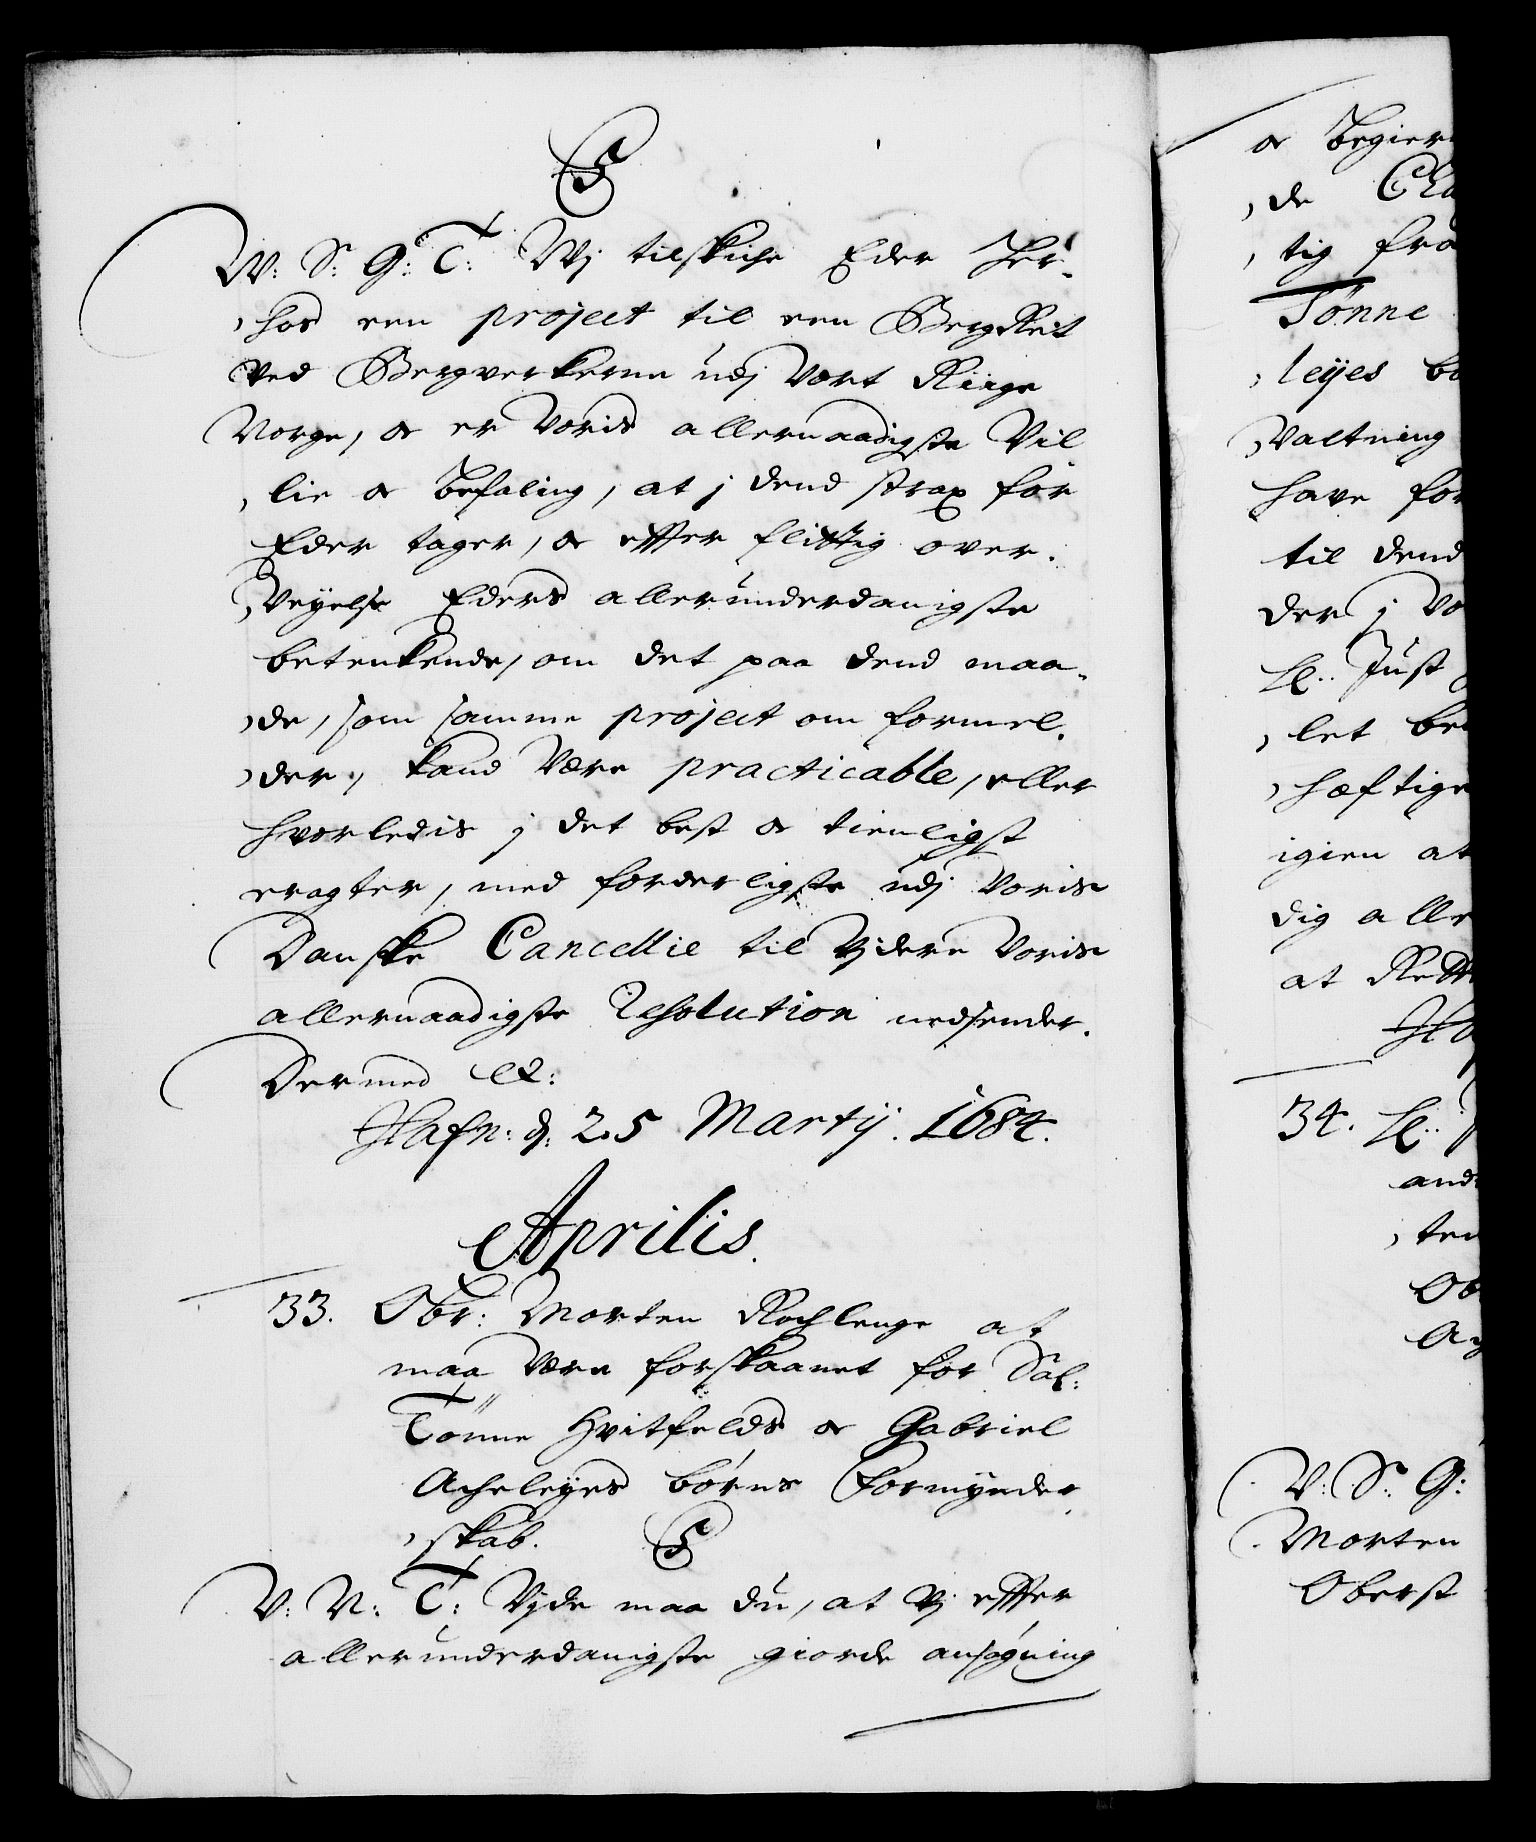 C5
W: S: G: T: Wj tilskiche Eder Her-
hos een project til een BergReit
Ved Bergverkerne udj Vort Riige
Norge, oc er Voris allernaadigste Vil
lie oc Befaling, at j dend strax for
Eder tager, oc effter flittig over-
Veyelse Eders allerunderdanigste
betenkende, om det paa dend maa-
de, som samme project om formel-
der, kand Være practicable, eller
hvorledis j det best oc tienligst
eragter, med forderligste udj Voris
Danske Cancellie til Vjdere Voris
allernaadigste Resolution nedsender.
Dermed etc:
Hafn: d: 25 Martij. 1684.
Aprilis.
33. Obr: Morten Rochlenge at
maa Være forskaanet for Sal:
Tönne Hvitfelds oc Gabriel
Acheleyes börns Formynder
skab.
V: N: T: Vjde maa du, at Vj effter
allerunderdanigste giorde ansögning
oc Begier
de
tig fra
Tønne
leyes
Valtning
have for
til dend
der j
Just
let
hæftige
igien at
dig alle
at
34.
V: S: G:
Morten
Oberst